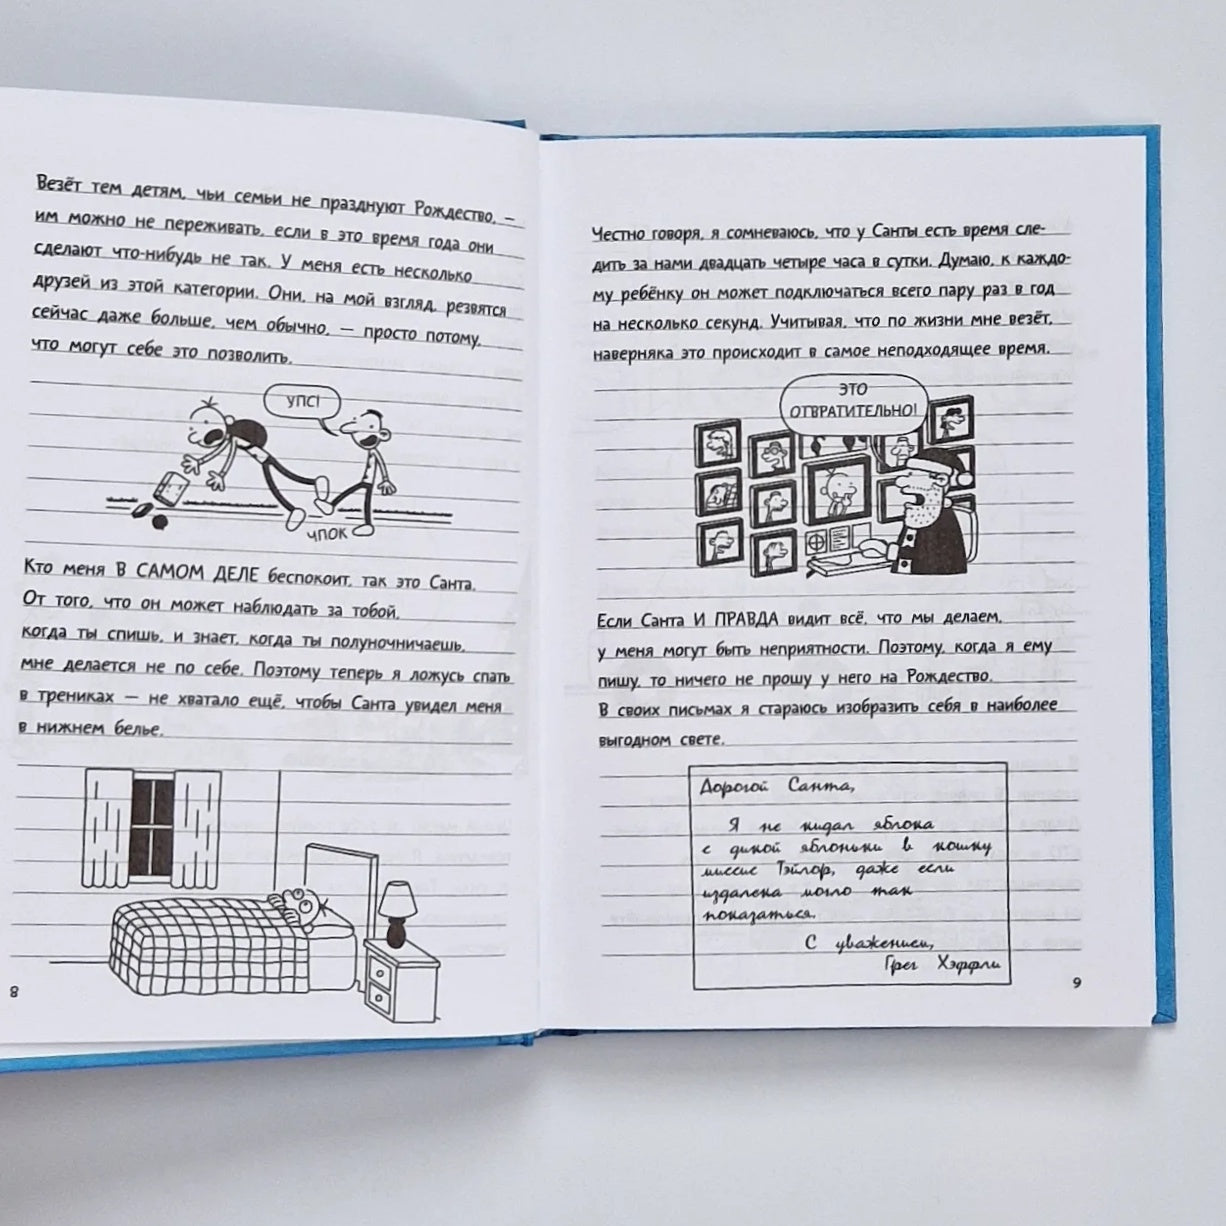 Везёт тем детям, чьи семьи не празднуют Рождество, –
им можно не переживать, если в это время года они
сделают что-нибудь не так. У меня есть несколько
друзей из этой категории. Они, на мой взгляд, резвятся
сейчас даже больше, чем обычно, – просто потому,
что могут себе это позволить.
УПС!
ЧПОК
Кто меня В САМОМ ДЕЛЕ беспокоит, так это Санта.
От того, что он может наблюдать за тобой,
когда ты спишь, и знает, когда ты полуночничаешь,
мне делается не по себе. Поэтому теперь я ложусь спать
в трениках – не хватало ещё, чтобы Санта увидел меня
в нижнем белье.
8
Честно говоря, я сомневаюсь, что у Санты есть время сле-
дить за нами двадцать четыре часа в сутки. Думаю, к каждо-
му ребёнку он может подключаться всего пару раз в год
на несколько секунд. Учитывая, что по жизни мне везёт,
наверняка это происходит в самое неподходящее время.
ЭТО
ОТВРАТИТЕЛЬНО!
Если Санта И ПРАВДА видит всё, что мы делаем,
у меня могут быть неприятности. Поэтому, когда я ему
пишу, то ничего не прошу у него на Рождество.
В своих письмах я стараюсь изобразить себя в наиболее
выгодном свете.
Дорогой Санта,
Я не кидал яблока
с дикой яблоньки в кошку
миссис Тэйлор, даже если
издалека могло так
показаться.
С уважением,
Грег Хэффли
9